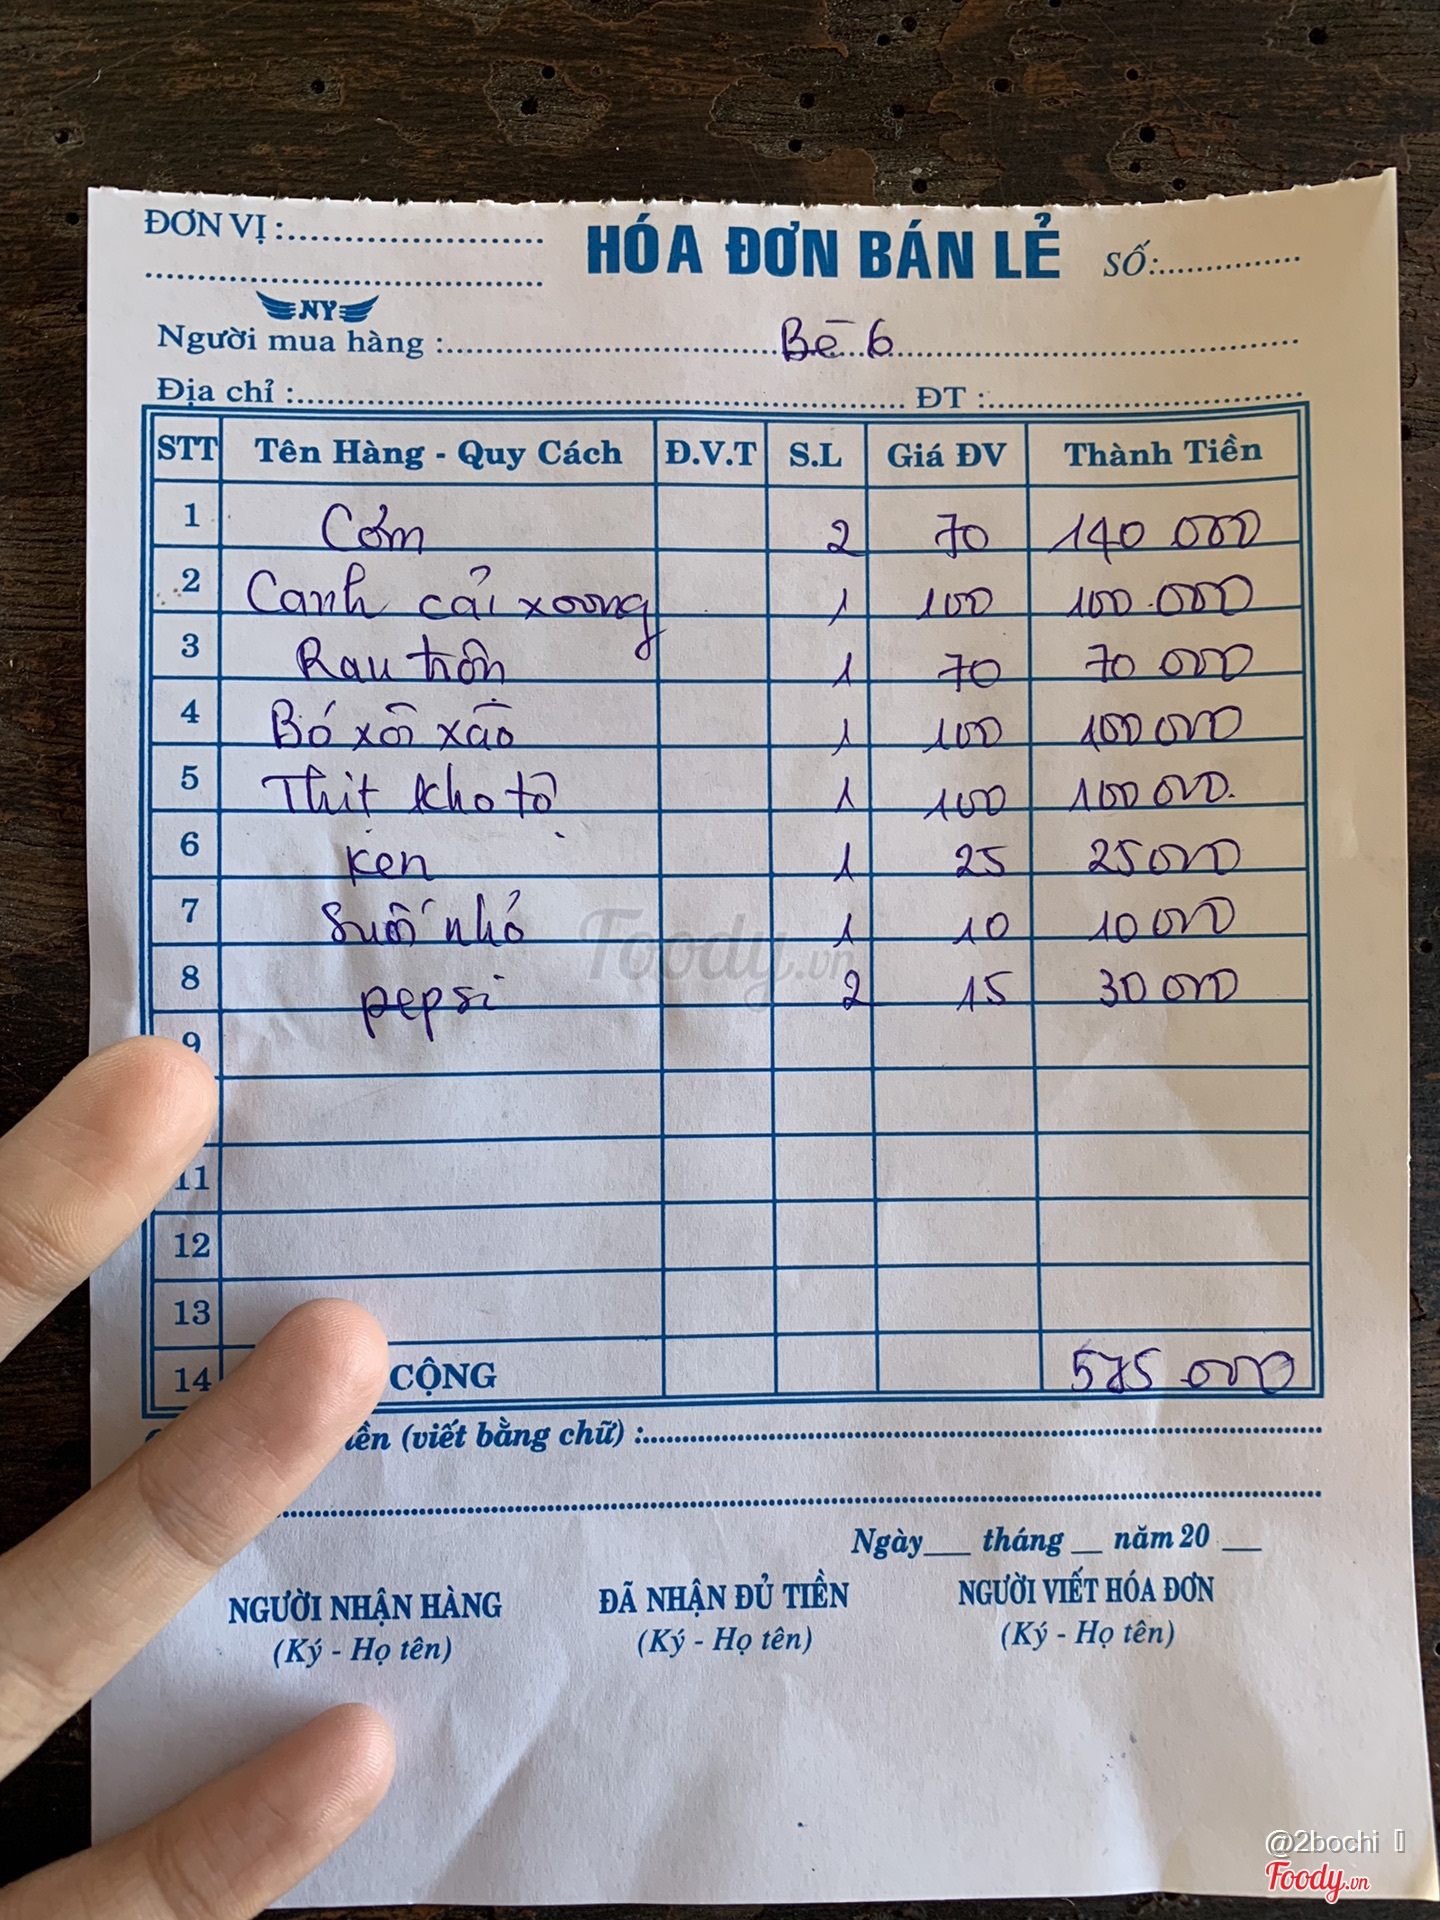 ĐƠN VỊ :........................ HÓA ĐƠN BÁN LẺ SỐ:...............
NY
Người mua hàng : Bè 6
Địa chỉ :........................ ĐT :........................
STT Tên Hàng - Quy Cách Đ.V.T S.L Giá ĐV Thành Tiền
1 Cơm 2 70 140 000
2 Canh cải xoong 1 100 100.000
3 Rau trộn 1 70 70 000
4 Bó xôi xào 1 100 100 000
5 Thịt kho tộ 1 100 100 000.
6 Ken 1 25 25 000
7 Suối nhỏ 1 10 10 000
8 pepsi 2 15 30 000
9
11
12
13
14 CỘNG 575 000
iền (viết bằng chữ) :........................
Ngày___ tháng __ năm 20 __
NGƯỜI NHẬN HÀNG ĐÃ NHẬN ĐỦ TIỀN NGƯỜI VIẾT HÓA ĐƠN
(Ký - Họ tên) (Ký - Họ tên) (Ký - Họ tên)
Foody.vn
@2bochi
Foody.vn